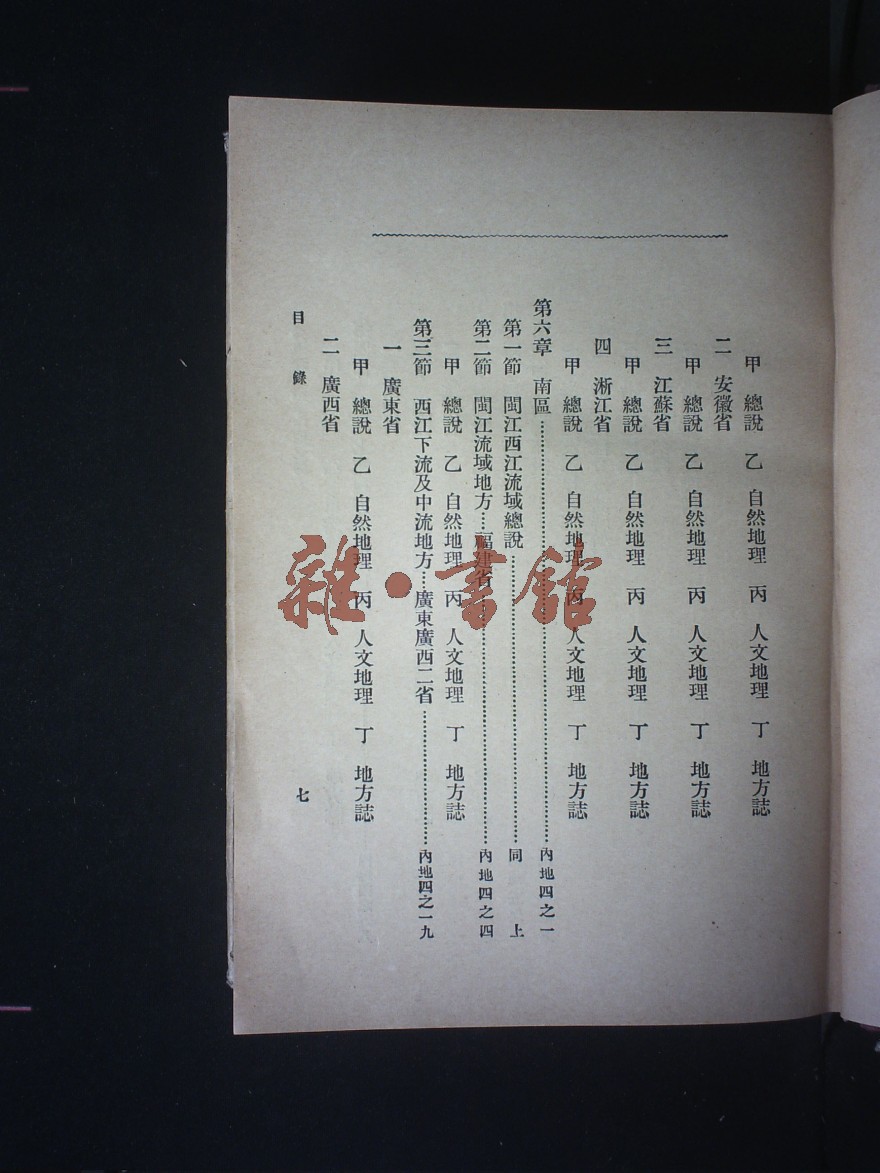 甲　總說　乙　自然地理　丙　人文地理　丁　地方誌
二　安徽省
甲　總說　乙　自然地理　丙　人文地理　丁　地方誌
三　江蘇省
甲　總說　乙　自然地理　丙　人文地理　丁　地方誌
四　淅江省
甲　總說　乙　自然地理　丙　人文地理　丁　地方誌
第六章　南區……內地四之一
第一節　閩江西江流域總說……同上
第二節　閩江流域地方……福建省……內地四之四
甲　總說　乙　自然地理　丙　人文地理　丁　地方誌
第三節　西江下流及中流地方……廣東廣西二省……內地四之一九
一　廣東省
甲　總說　乙　自然地理　丙　人文地理　丁　地方誌
二　廣西省
目錄
七
雜·書館